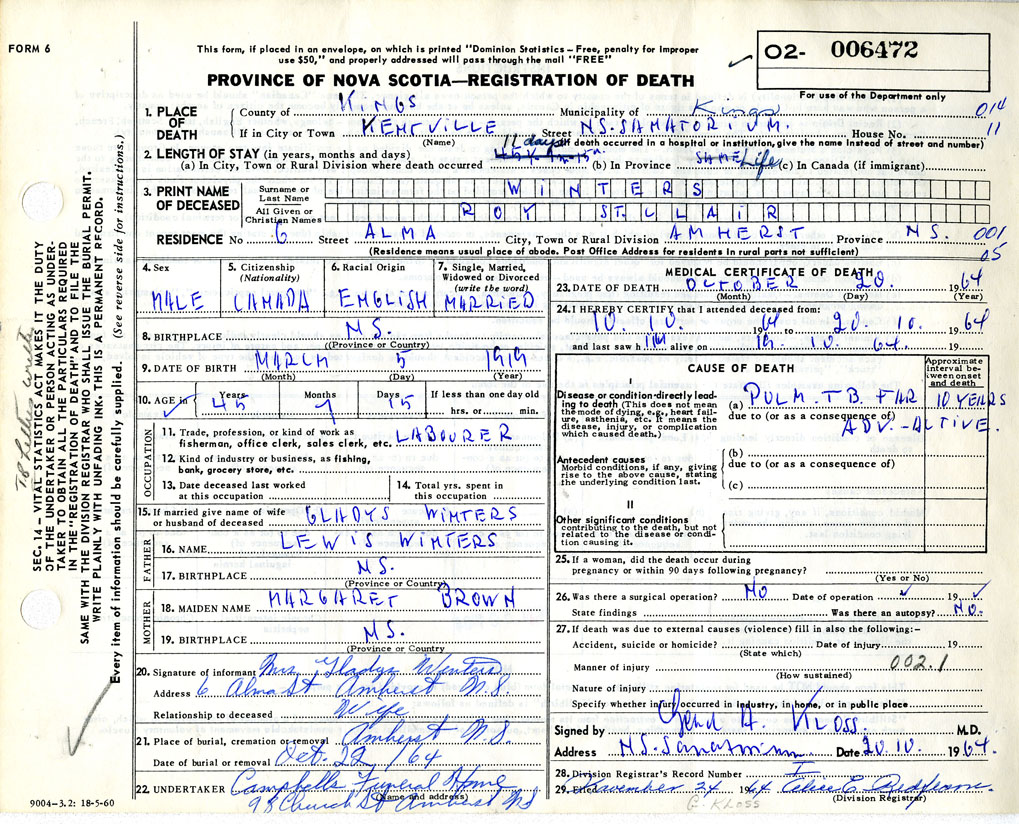 FORM 6
This form, if placed in an envelope, on which is printed "Dominion Statistics – Free, penalty for improper
use $50," and properly addressed will pass through the mail "FREE"
PROVINCE OF NOVA SCOTIA—REGISTRATION OF DEATH
02- 006472
For use of the Department only
014
11
1. PLACE OF DEATH
County of KINGS Municipality of Kings
If in City or Town KENTVILLE Street N.S. SANATORIUM. House No.
(Name) (If death occurred in a hospital or institution, give the name instead of street and number)
2. LENGTH OF STAY (in years, months and days)
11 days
(a) In City, Town or Rural Division where death occurred (b) In Province Life (c) In Canada (if immigrant)
3. PRINT NAME OF DECEASED
Surname or Last Name WINTERS
All Given or Christian Names ROY ST. CLAIR
RESIDENCE No 6 Street ALMA City, Town or Rural Division AMHERST Province N.S. 001
05
(Residence means usual place of abode. Post Office Address for residents in rural parts not sufficient)
4. Sex MALE
5. Citizenship (Nationality) CANADA
6. Racial Origin ENGLISH
7. Single, Married, Widowed or Divorced (write the word) MARRIED
8. BIRTHPLACE N.S.
(Province or Country)
9. DATE OF BIRTH MARCH 5 1919
(Month) (Day) (Year)
10. AGE in Years 45 Months 7 Days 15 If less than one day old hrs. or min.
OCCUPATION
11. Trade, profession, or kind of work as fisherman, office clerk, sales clerk, etc. LABOURER
12. Kind of industry or business, as fishing, bank, grocery store, etc.
13. Date deceased last worked at this occupation
14. Total yrs. spent in this occupation
15. If married give name of wife or husband of deceased GLADYS WINTERS
FATHER
16. NAME LEWIS WINTERS
17. BIRTHPLACE N.S.
(Province or Country)
MOTHER
18. MAIDEN NAME MARGARET BROWN
19. BIRTHPLACE N.S.
(Province or Country
20. Signature of informant Mrs. Gladys Winters
Address 6 Alma St Amherst N.S.
Relationship to deceased Wife
21. Place of burial, cremation or removal Amherst N.S.
Date of burial or removal Oct. 22/64
22. UNDERTAKER Campbells Funeral Home
(Name and address)
98 Church St Amherst NS
MEDICAL CERTIFICATE OF DEATH
23. DATE OF DEATH OCTOBER 20. 1964
(Month) (Day) (Year)
24. I HEREBY CERTIFY that I attended deceased from:
10. 10. 1964 to 20. 10. 1964
and last saw him alive on 19. 10. 64. 19
CAUSE OF DEATH
Approximate interval between onset and death
I
Disease or condition directly leading to death (This does not mean the mode of dying, e.g., heart failure, asthenia, etc. It means the disease, injury, or complication which caused death.)
(a) PULM. TB. FAR 10 YEARS
due to (or as a consequence of)
ADV. - ACTIVE.
Antecedent causes
Morbid conditions, if any, giving rise to the above cause, stating the underlying condition last.
(b)
due to (or as a consequence of)
(c)
II
Other significant conditions contributing to the death, but not related to the disease or condition causing it.
25. If a woman, did the death occur during pregnancy or within 90 days following pregnancy?
(Yes or No)
26. Was there a surgical operation? NO Date of operation 19
State findings Was there an autopsy? NO.
27. If death was due to external causes (violence) fill in also the following:–
Accident, suicide or homicide? Date of injury 19
(State which)
Manner of injury 002.1
(How sustained)
Nature of injury
Specify whether injury occurred in industry, in home, or in public place
Signed by Gerd A. Kloss. M.D.
Address N.S. Sanatorium Date 20.10. 1964.
28. Division Registrar's Record Number I
29. Filed November 24 1964
(Division Registrar)
G. KLOSS
SEC. 14 – VITAL STATISTICS ACT MAKES IT THE DUTY
OF THE UNDERTAKER OR PERSON ACTING AS UNDER-
TAKER TO OBTAIN ALL THE PARTICULARS REQUIRED
IN THE "REGISTRATION OF DEATH" AND TO FILE THE
SAME WITH THE DIVISION REGISTRAR WHO SHALL ISSUE THE BURIAL PERMIT.
WRITE PLAINLY WITH UNFADING INK. THIS IS A PERMANENT RECORD.
Every item of information should be carefully supplied. (See reverse side for instructions.)
9004-3.2: 18-5-60